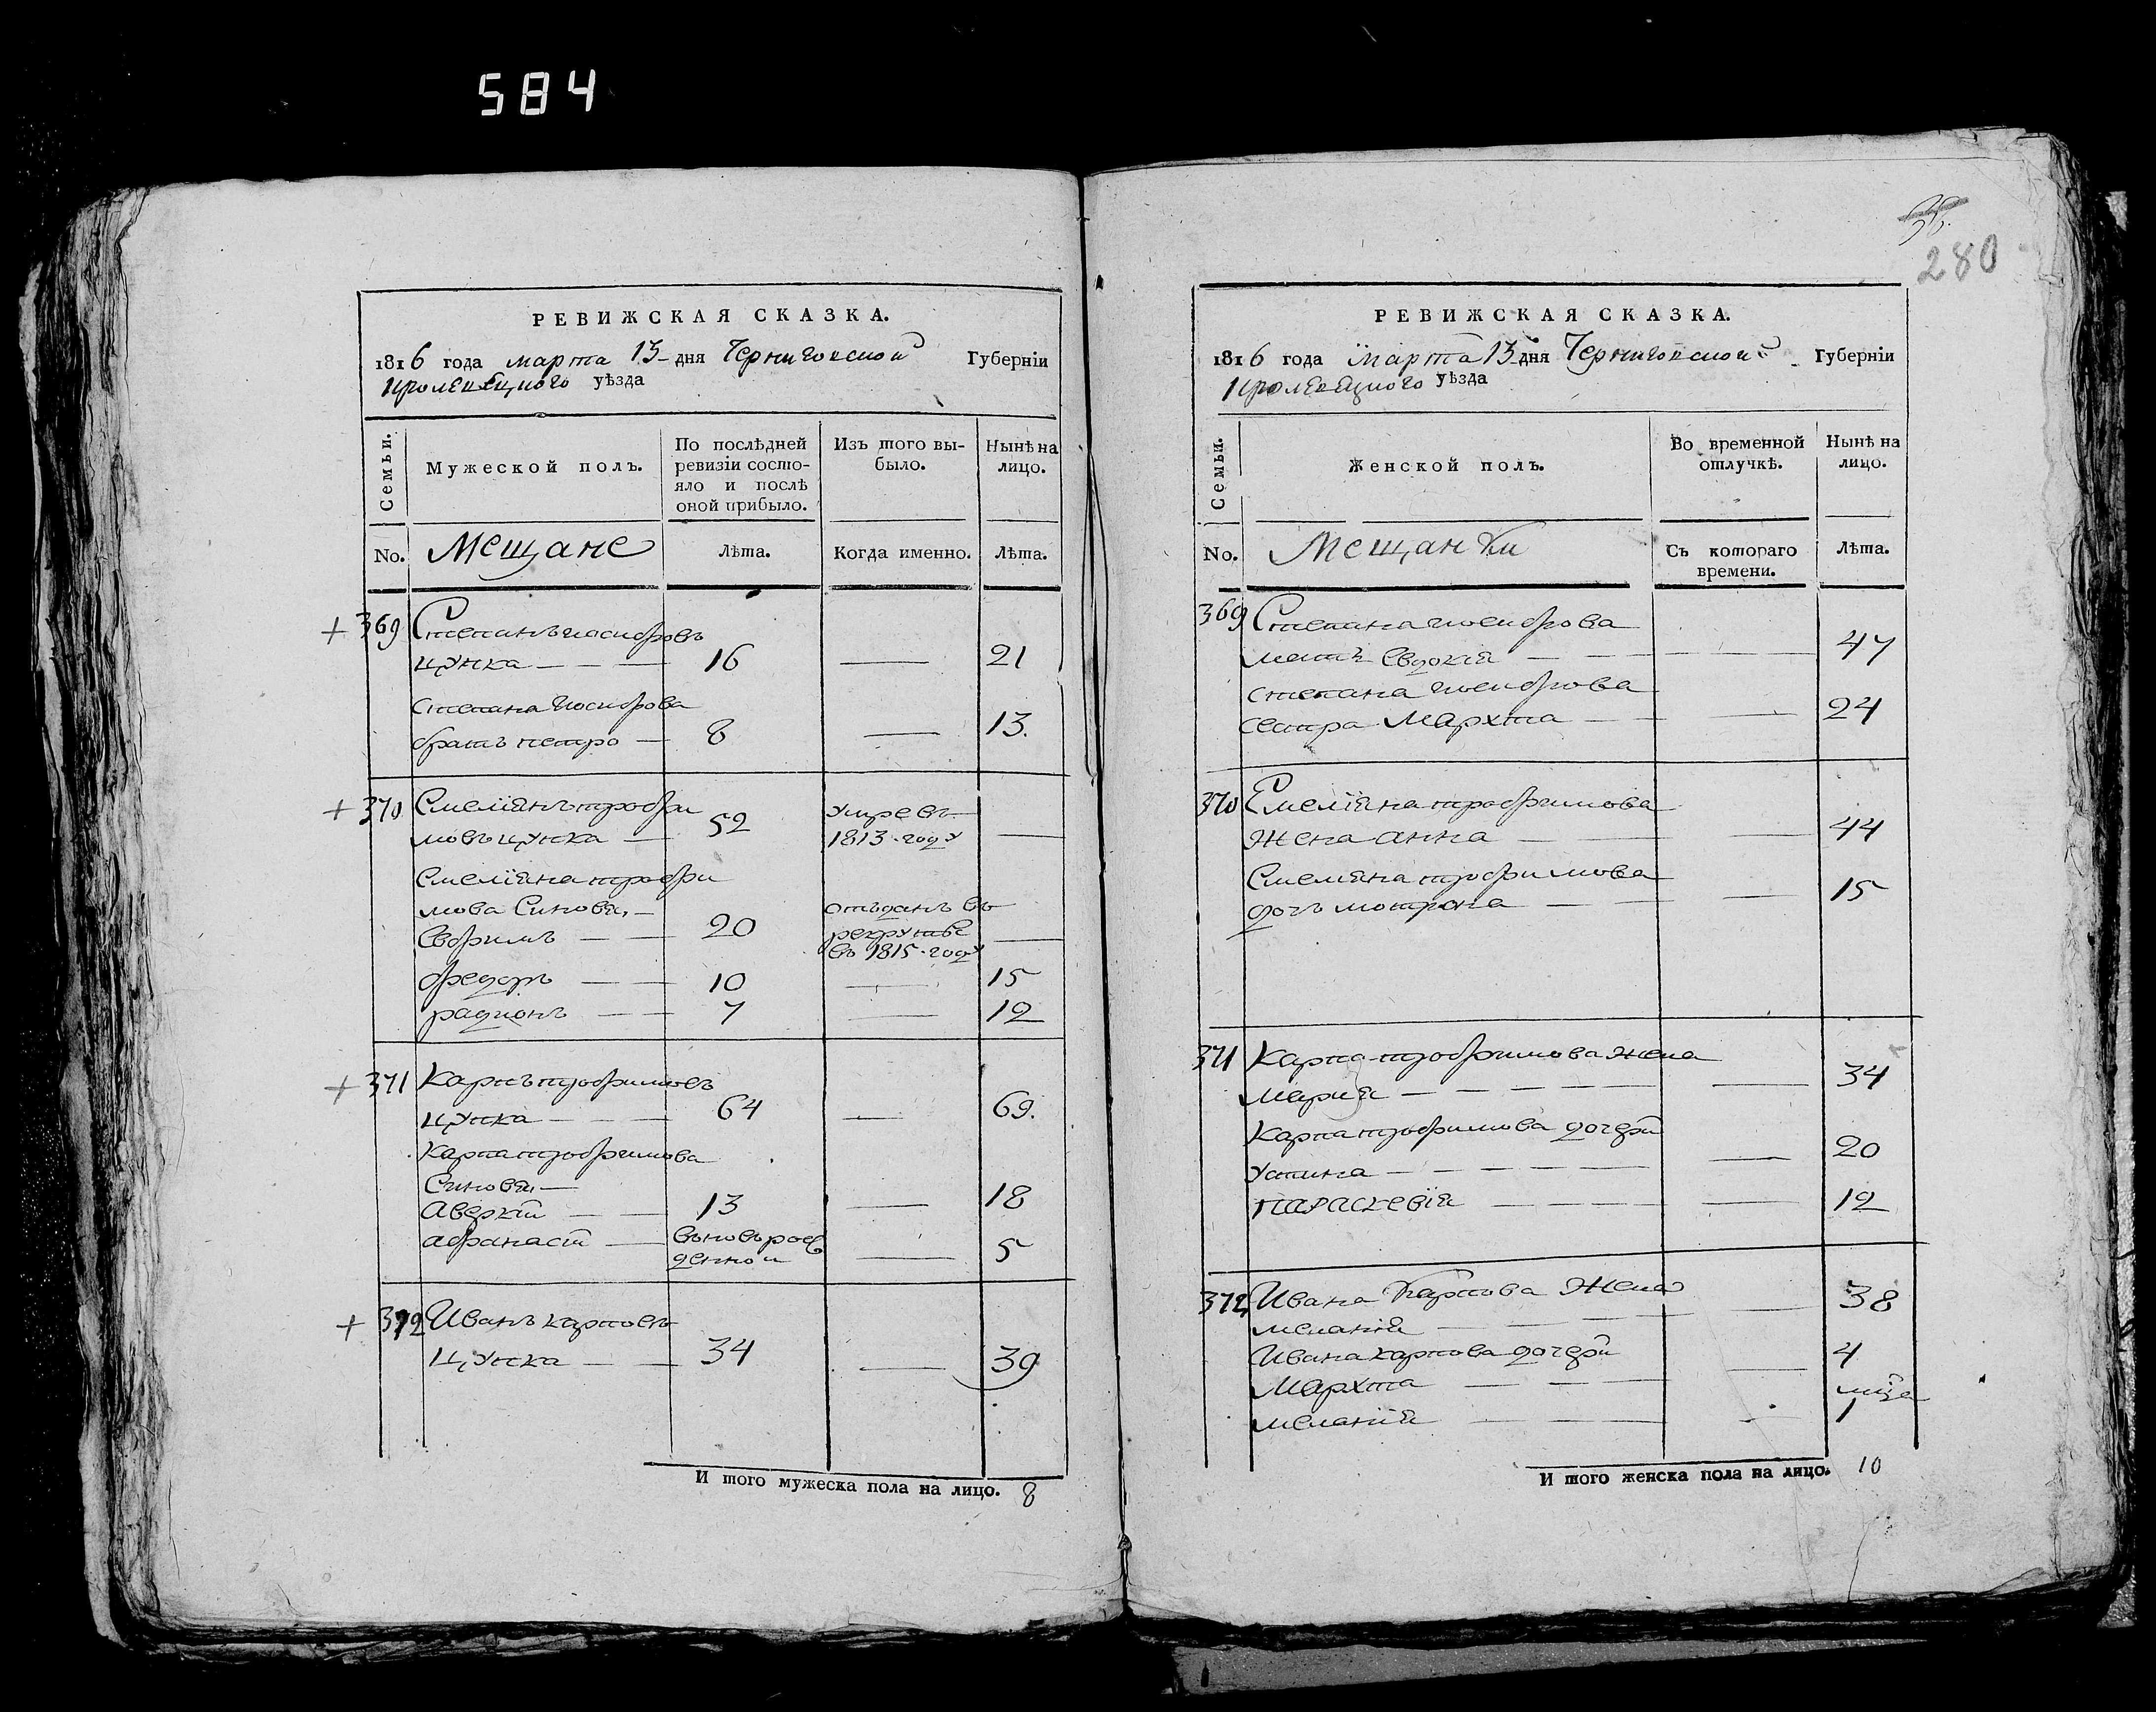 584
РЕВИЖСКАЯ СКАЗКА.
1816 года марта 13 дня Черниговской Губерніи
Кролевецкого уѣзда
Семьи.
Мужеской полъ.
По послѣдней
ревизіи состо-
яло и послѣ
оной прибыло.
Изъ того вы-
было.
Нынѣ на
лицо.
No.
Мещане
Лѣта.
Когда именно.
Лѣта.
+ 369 Степанъ иосифовъ
цупка — — — 16 — 21
степана иосифова
братъ петро — 8 — 13.
+ 370 Емелианъ трофи
мовъ цупка — 52 умре въ 1813 году —
Емелиана трофи
мова Синовя, —
Ефримъ — — 20 отъданъ въ рекрутъ въ 1815 году —
федоръ — — 10 — 15
радионъ — — 7 — 12
+ 371 Карпъ трофимовъ
цупка — — — 64 — 69.
Карпа трофимова
Синовя, —
Аверкій — — 13 — 18
афанасій — вьновъ рож денной — 5
+ 372 Иванъ карповъ
цупка — — 34 — 39
И того мужеска пола на лицо. 8
280
РЕВИЖСКАЯ СКАЗКА.
1816 года марта 13 дня Черниговской Губерніи
Кролевецкого уѣзда
Семьи.
Женской полъ.
Во временной
отлучкѣ.
Нынѣ на
лицо.
No.
Мещанки
Съ котораго
времени.
Лѣта.
369 Степана иосифова
мать Евдокия — — — 47
степана иосифова
сестра Мархта — — 24
370 Емелиана трофимова
жена анна — — 44
Емелиана трофимова
дочъ мотрона — — — 15
371 Карпа трофимова жена
мария — — — — — 34
Карпа трофимова дочери
устина — — — — — — 20
параскевия — — — — — 12
372 Ивана Карпова Жена
мелания — — — — 38
Ивана карпова дочери
Мархта — — — — 4
мелания — — — — 1
И того женска пола на лицо. 10